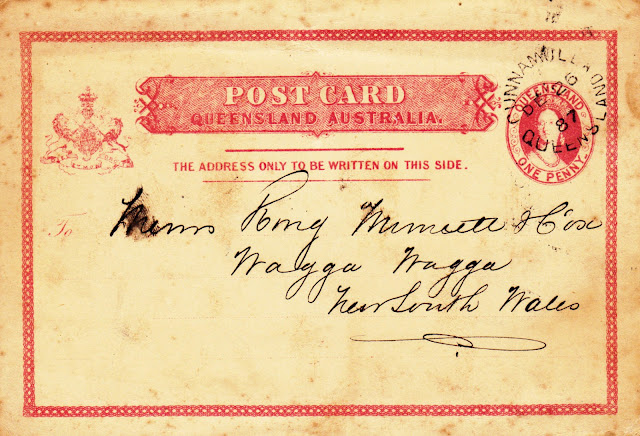 POST CARD
QUEENSLAND AUSTRALIA.
THE ADDRESS ONLY TO BE WRITTEN ON THIS SIDE.
CUNNAMULLA
DE 6
87
QUEENSLAND
QUEENSLAND
ONE PENNY.
To
Messrs King & Coy
Wagga Wagga
New South Wales